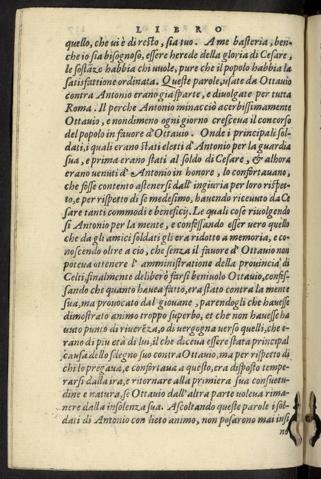 LIBRO
quello, che ui è di resto, sia tuo. A me basteria, ben-
che io sia bisognoso, essere herede della gloria di Cesare,
le sostāze habbia chi uuole, pure che il popolo habbia la
satisfattione ordinata. Queste parole, usate da Ottauio
contra Antonio erano già sparte, e diuolgate per tutta
Roma. Il perche Antonio minacciò acerbissimamente
Ottauio, e nondimeno ogni giorno cresceua il concorso
del popolo in fauore d'Ottauio. Onde i principali sol-
dati, i quali erano stati eletti d'Antonio per la guardia
sua, e prima erano stati al soldo di Cesare, & alhora
erano uenuti d'Antonio in honore, lo confortauano,
che fosse contento astenersi dall'ingiuria per loro rispet-
to, e per rispetto di se medesimo, hauendo riceuuto da Ce
sare tanti commodi e beneficij. Le quali cose riuolgendo
si Antonio per la mente, e confessando esser uero quello
che da gli amici soldati gli era ridotto a memoria, e co-
noscendo oltre a ciò, che senza il fauore d'Ottauio non
poteua ottenere l'amministratione della prouincia de'
Celti, finalmente deliberò farsi beniuolo Ottauio, confes-
sando che quanto haueua fatto, era stato contra la mente
sua, ma prouocato dal giouane, parendogli che hauesse
dimostrato animo troppo superbo, et che non hauesse ha
uuto punto di riuerēza, o di uergogna uerso quelli, che e-
rano di più età di lui, il che diceua essere stata principal
causa dello sdegno suo contra Ottauio, ma per rispetto di
chi lo pregaua, e confortaua a questo, era disposto tempe-
rarsi dalla ira, e ritornare alla primiera sua consuetu-
dine e natura, se Ottauio dall'altra parte uoleua rima-
nere dalla insolenza sua. Ascoltando queste parole i sol-
dati di Antonio con lieto animo, non posarono mai insi
no